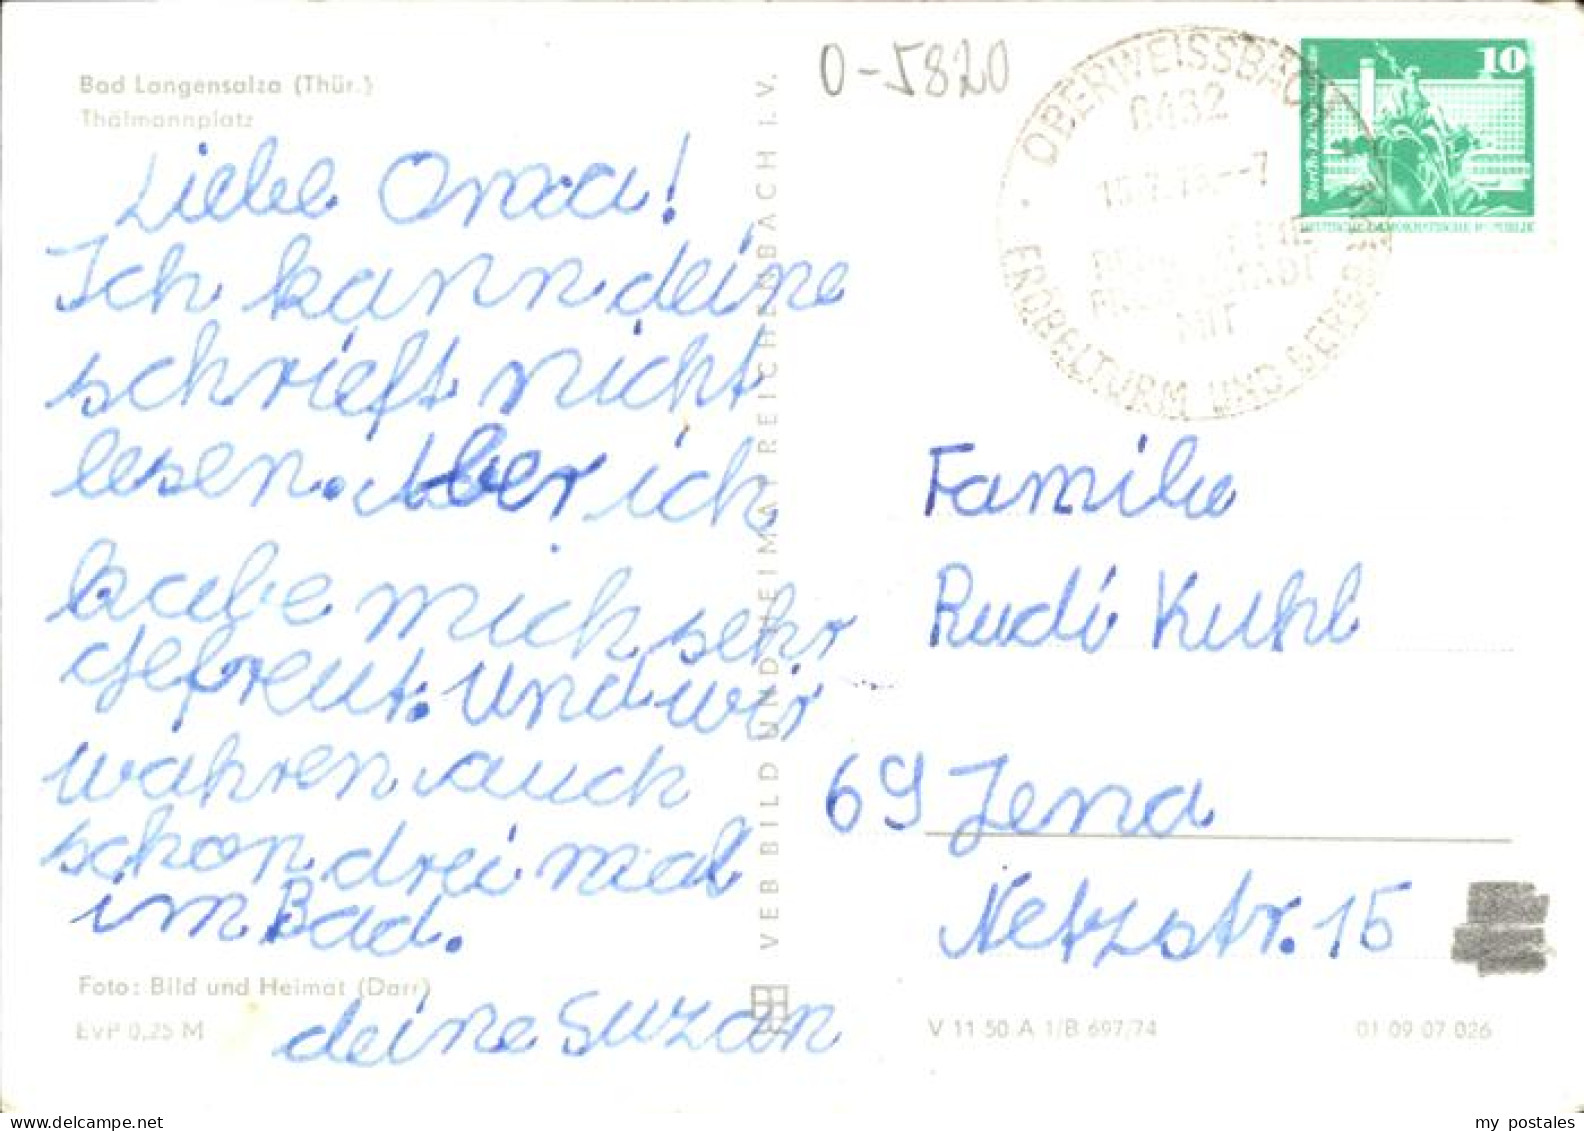 Bad Langensalza (Thür.)
Thälmannplatz
Liebe Oma!
Ich kann deine
schrieft nicht
lesen. Aber ich
habe mich sehr
gefreut. Und wir
wahren auch
schon drei mal
im Bad.
deine Suzan
Foto: Bild und Heimat (Darr)
EVP 0,25 M
VEB BILD UND HEIMAT REICHENBACH I. V.
0-5820
OBERWEISSBACH
6432
FRÖBELTURM UND
MIT
10
DEUTSCHE DEMOKRATISCHE REPUBLIK
Familie
Rudi Kuhl
69 Jena
Netzstr. 15
V 11 50 A 1/B 697/74
01 09 07 026
www.delcampe.net
my postales